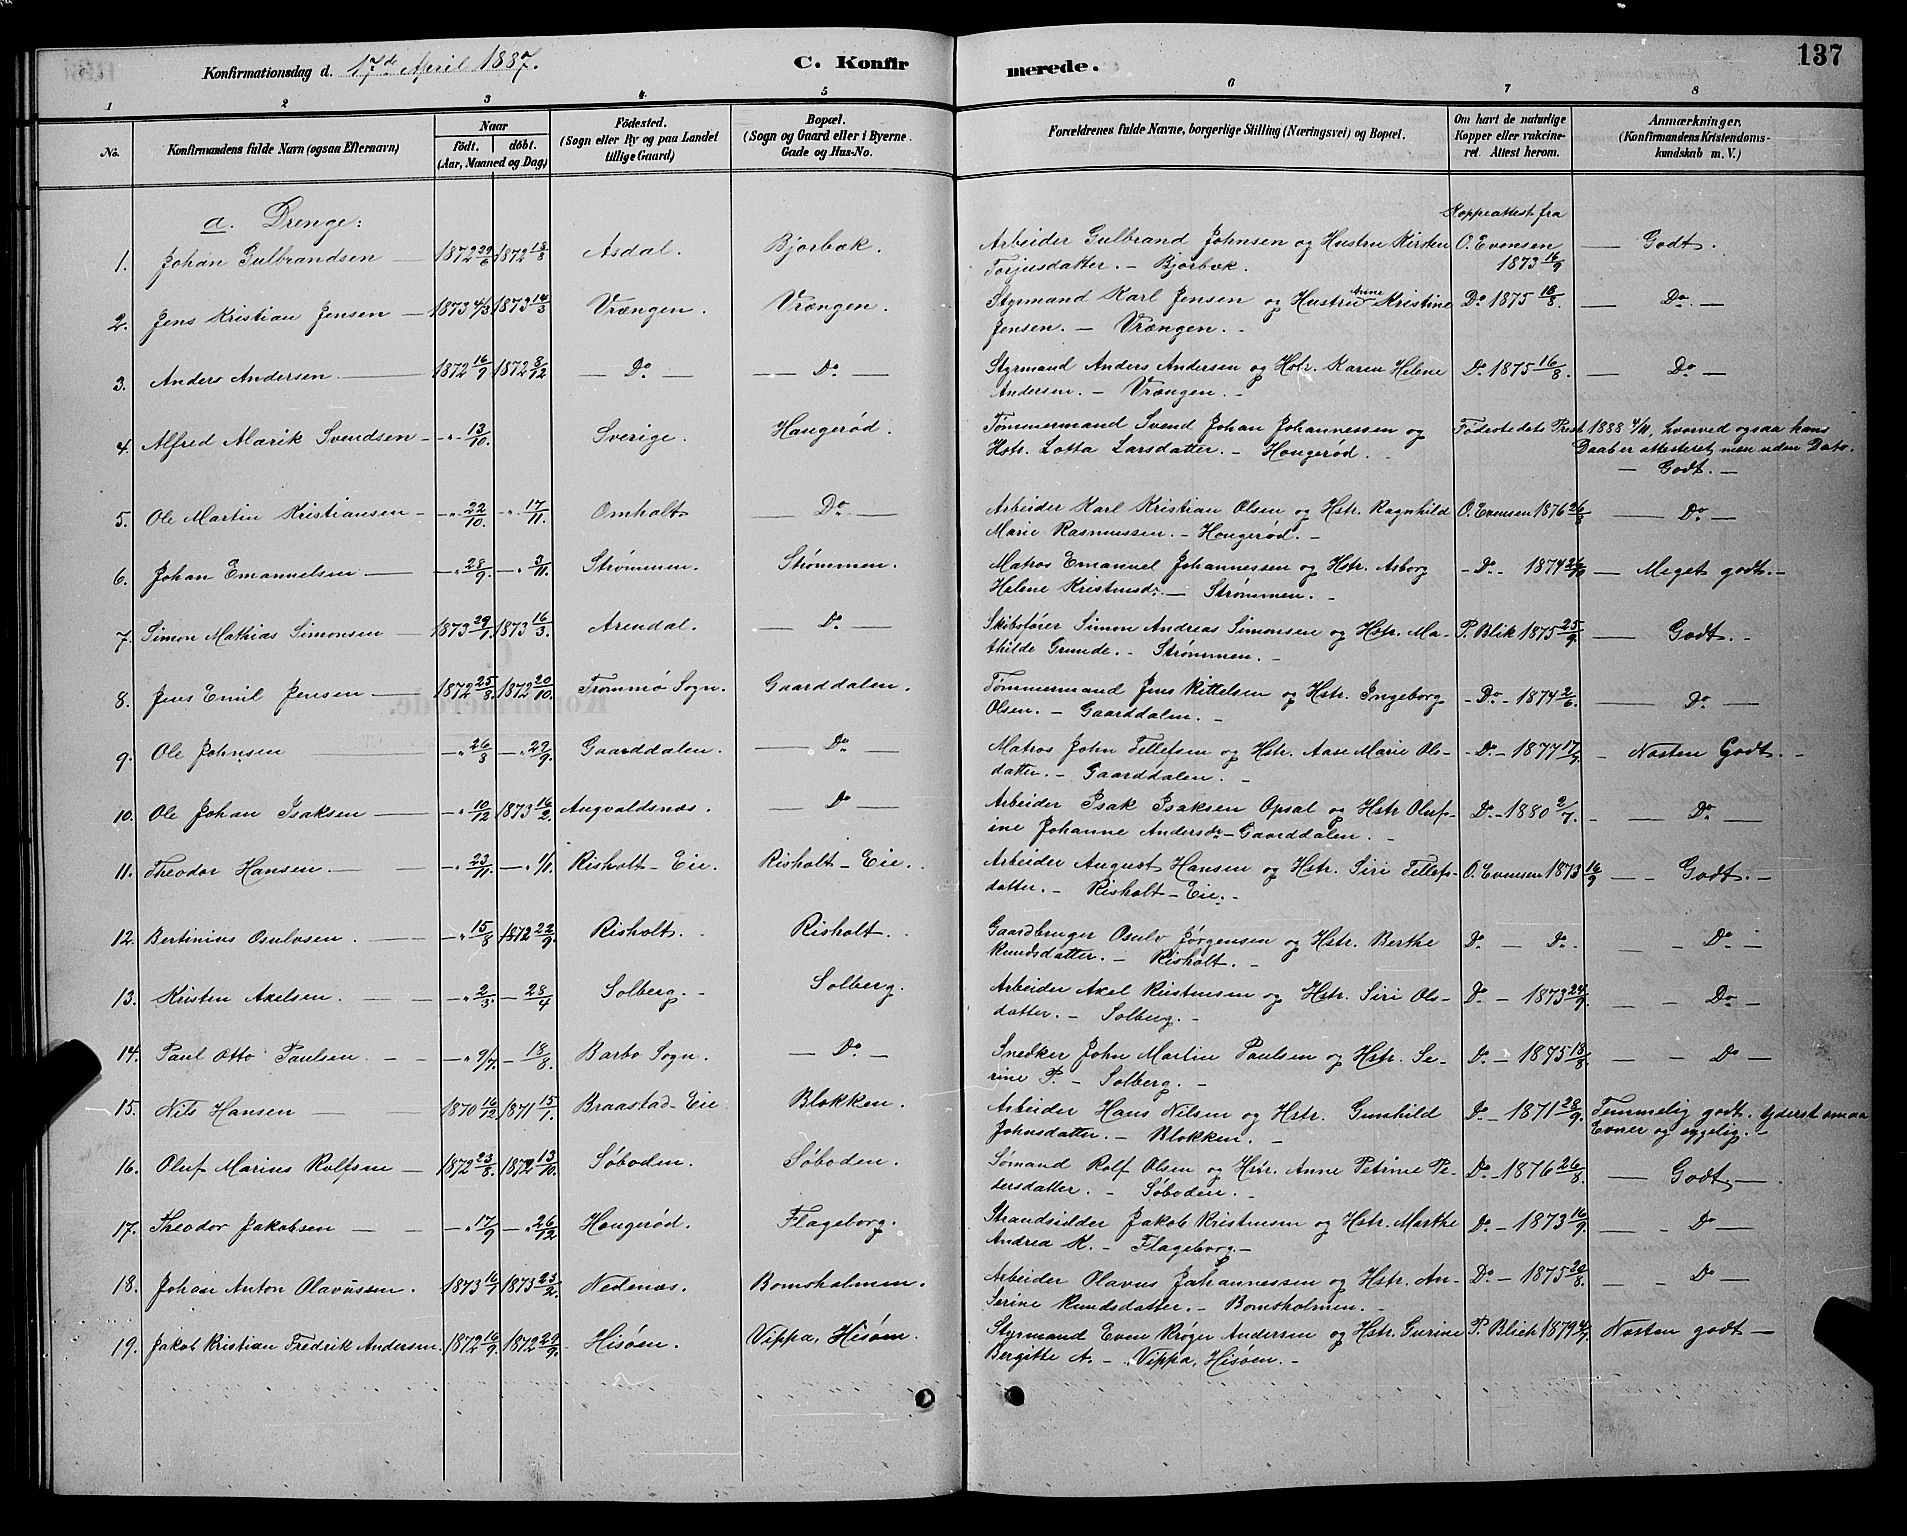 137
Konfirmationsdag d. 17de April 1887.
C. Konfirmerede.
1 2 3 4 5 6 7 8
No. Konfirmandens fulde Navn (ogsaa Efternavn) Naar födt. döbt. (Aar, Maaned og Dag) Födested. (Sogn eller By og paa Landet tillige Gaard) Bopæl. (Sogn og Gaard eller i Byerne Gade og Hus-No. Forældrenes fulde Navne, borgerlige Stilling (Næringsvei) og Bopæl. Om havt de naturlige Kopper eller vakcineret. Attest herom. Anmærkninger, (Konfirmandens Kristendomskundskab m. V.)
a. Drenge:
Koppeattest fra
1. Johan Gulbrandsen 1872 29/6 1872 18/8 Asdal. Bjorbæk. Arbeider Gulbrand Johnsen og Hustru Kirsten O. Evensen — Godt.
Torjusdatter. – Bjorbæk. 1873 16/9
2. Jens Kristian Jensen — 1873 4/3 1873 14/3 Vrængen. Vrængen. Styrmand Karl Jensen og Hustru Anne Kristine Do 1875 18/8. — Do. —
Jensen. – Vrængen. –
3. Anders Andersen — 1872 16/9 1872 8/12 — Do — — Do — Styrmand Anders Andersen og Hstr. Karen Helene Do 1875 16/8. — Do —
Andersen. – Vrængen. –
4. Alfred Marik Svendsen – „ 13/10. Sverige. Haugerød. Tømmermand Svend Johan Johannessen og Fødestedets Prest 1888 4/11, hvorved ogsaa hans
Hstr. Lotta Larsdatter. – Hougerød. Daab er attesteret, men uden Dato.
— Godt. —
5. Ole Martin Kristiansen – „ 22/10. – „ 17/11. Omholt. — Do — Arbeider Karl Kristian Olsen og Hstr. Ragnhild O. Evensen 1876 26/8 — Do —
Marie Rasmussen. – Hougerød. –
6. Johan Emanuelsen — – „ 28/9. – „ 3/11. Strømmen. Strømmen. Matros Emanuel Johannessen og Hstr. Asborg – Do – 1874 — Meget godt. –
Helene Kristensd. – Strømmen. –
7. Simon Mathias Simonsen — 1873 29/1. 1873 16/3. Arendal. — Do — Skibsfører Simon Andreas Simonsen og Hstr. Ma- P. Blik 1875 25/9. — Godt. –
thilde Grunde. – Strømmen. –
8. Jens Emil Jensen — 1872 25/8. 1872 20/10. Trommø Sogn. Gaarddalen. Tømmermand Jens Kittelsen og Hstr. Ingeborg – Do – 1874 2/6. — Do —
Olsen. – Gaarddalen. –
9. Ole Johnsen – „ 26/8 – „ 29/9. Gaarddalen. — Do — Matros John Tellefsen og Hstr. Aase Marie Ols- – Do – 1877 17/7 – Næsten Godt. –
datter. – Gaarddalen. –
10. Ole Johan Isaksen — – „ 10/12 1873 16/2. Augvaldsnæs. — Do — Arbeider Isak Isaksen Opsal og Hstr Oluf- Do – 1880 2/7. – — Do —
ine Johanne Andersdr – Gaarddalen. –
11. Theodor Hansen. – – „ 23/11. – „ 1/1. Risholt – Eie. Risholt – Eie. Arbeider August Hansen og Hstr. Siri Tellefs- O. Evensen 1873 16/9 — Godt. –
datter. – Risholt – Eie. –
12. Bertinius Osulvsen. — – „ 15/8 1872 22/9. Risholt. Risholt. Gaardbruger Osulv Jørgensen og Hstr. Berthe Do – Do. — – Do –
Knudsdatter. – Risholt. –
13. Kristen Axelsen. — – „ 2/3. – 28/4 Solberg. – Solberg. Arbeider Axel Kristensen og Hstr. Siri Ols- Do – 1873 24/9. — – Do –
datter. – Solberg. –
14. Paul Otto Paulsen. – – – „ 9/7. – 18/8. Barbo Sogn. — Do — Snedker John Martin Paulsen og Hstr. Se- Do – 1875 18/8. — – Do —
rine P. – Solberg. –
15. Nils Hansen — 1870 16/12. 1871 15/1. Braastad – Eie Blokken. Arbeider Hans Nilsen og Hstr. Gunhild Do – 1871 28/9. Temmelig godt. Yderst smaa
Johnsdatter. – Blokken. – Evner og sygelig. –
16. Oluf Marius Rolfsen — 1872 23/8. 1872 13/10. Søboden. Søboden. Sømand Rolf Olsen og Hstr. Anne Petrine Pe- Do – 1876 26/8. — Godt. —
tersdatter. – Søboden. –
17. Theodor Jakobsen – „ 17/9 – „ 26/12 Hougerød. Flageborg. Strandsidder Jakob Kristensen og Hstr. Marthe Do – 1873 16/9. — – Do —
Andrea K. – Flageborg –
18. Johan Anton Olavussen. 1873 16/1 1873 23/2. Nedenæs. Bomsholmen. Arbeider Olavus Johannessen og Hstr. An- Do – 1875 20/8. — – Do —
Serine Knudsdatter. – Bomsholmen. –
19. Jakob Kristian Fredrik Andersen. 1872 16/9. 1872 29/9. Hisøen. Vippa, Hisøen. Styrmand Even Krøger Andersen og Hstr. Gurine P. Blich 1879 Næsten godt —
Bergitte A. – Vippa, Hisøen. –